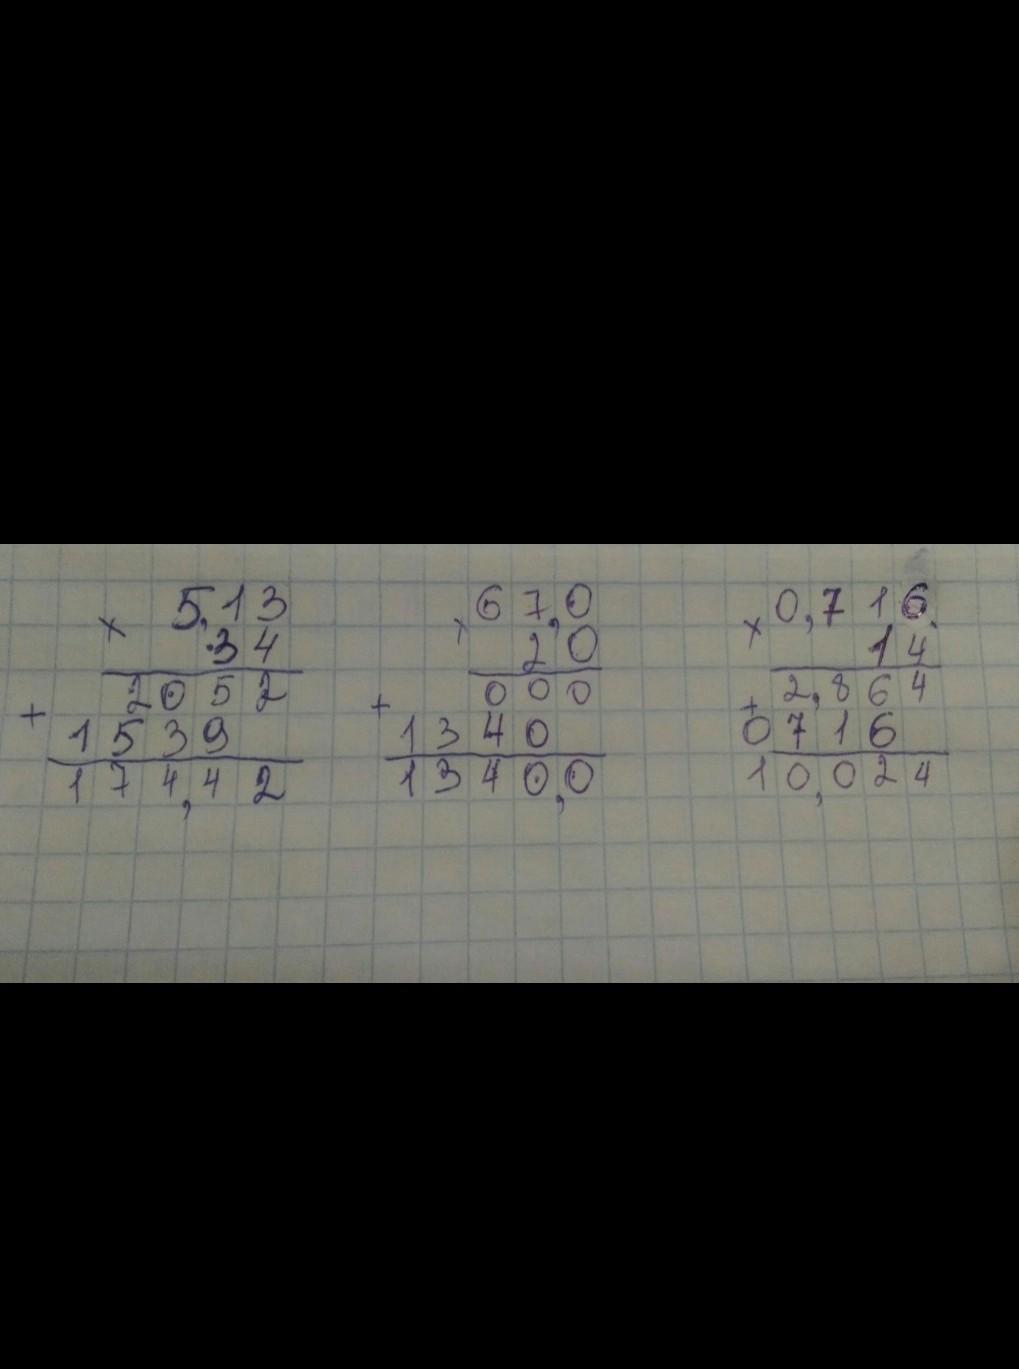 × 5,13
34
+ 2052
1539
174,42
× 67,0
20
+ 000
1340
1340,0
× 0,716
14
+ 2,864
0716
10,024